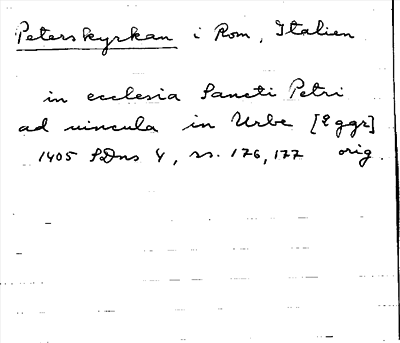 Peterskyrkan i Rom, Italien
in ecclesia Sancti Petri
ad uincula in Urbe [2 ggr]
1405 SDns 4, ss. 176, 177 orig.